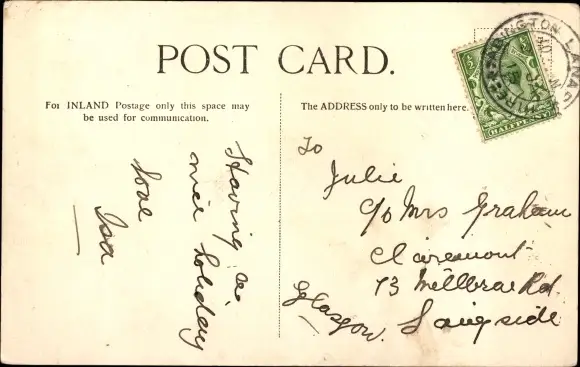 POST CARD.
For INLAND Postage only this space may
be used for communication.
The ADDRESS only to be written here.
HALFPENNY
Having a
nice holiday
love
Isa
To
Julie
C/o Mrs Graham
Claremont
73 Millbrae Rd
Langside
Glasgow.